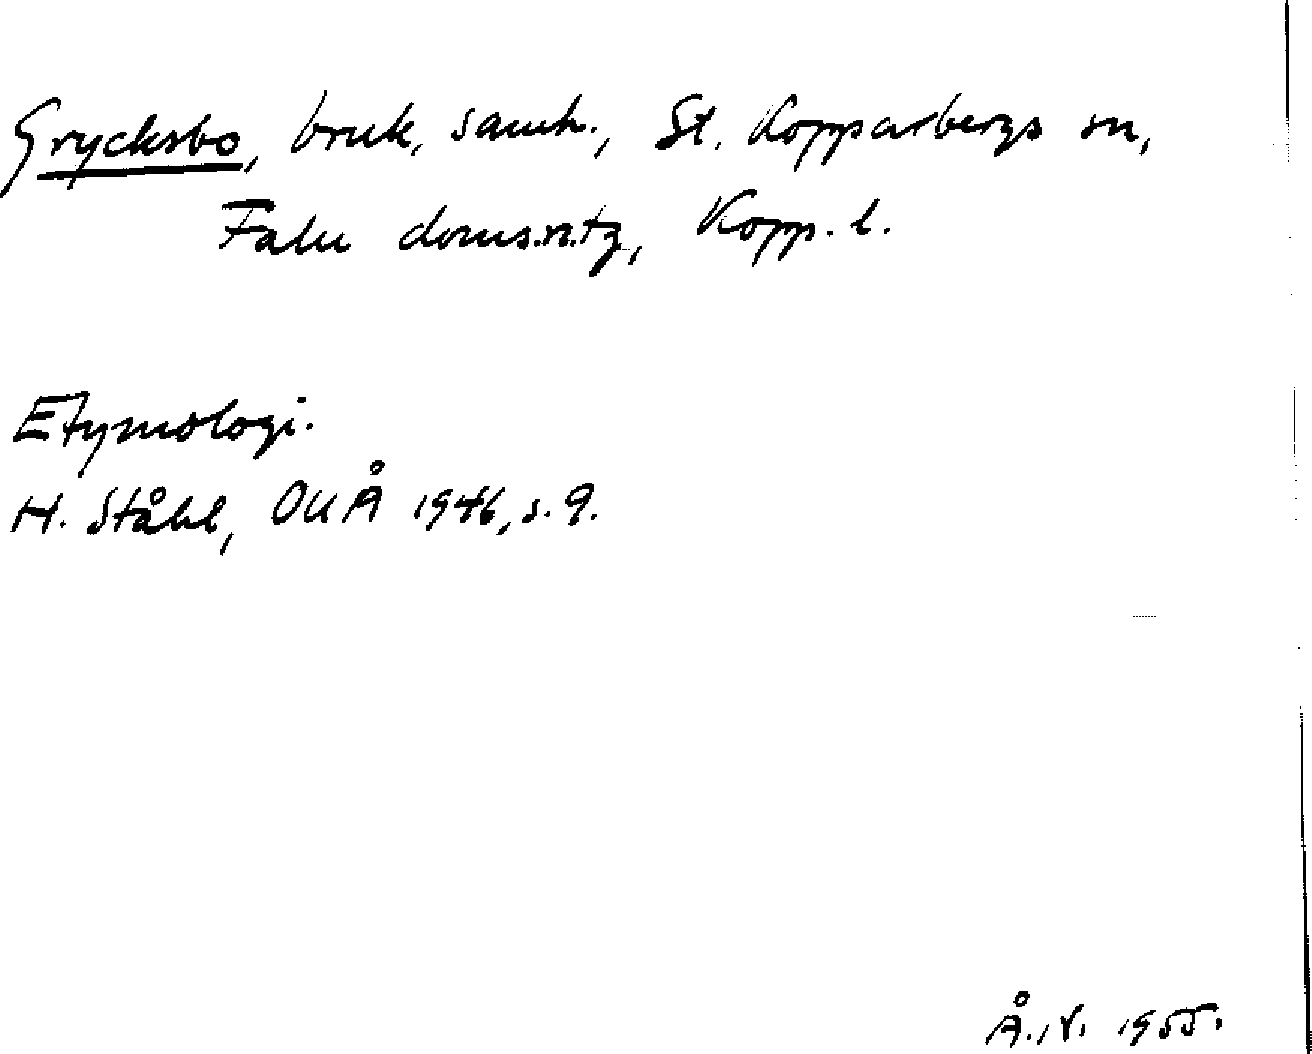 Grycksbo, bruk, samh., St. Kopparbergs sn,
Falu doms.n.tg, Kopp. l.
Etymologi.
H. Ståhl, OUÅ 1946, s. 9.
Å. V. 1955.